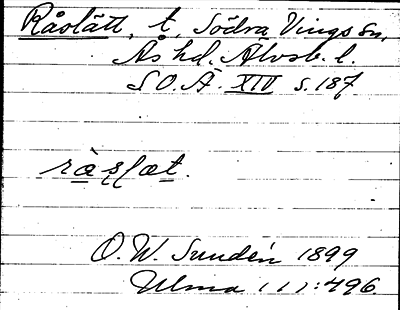 Råslätt, t., Södra Vings sn,
Ås hd. Älvsb. l.
S O. Ä. XIV s. 187.
O. W. Sundén 1899
Ulma 111:496.